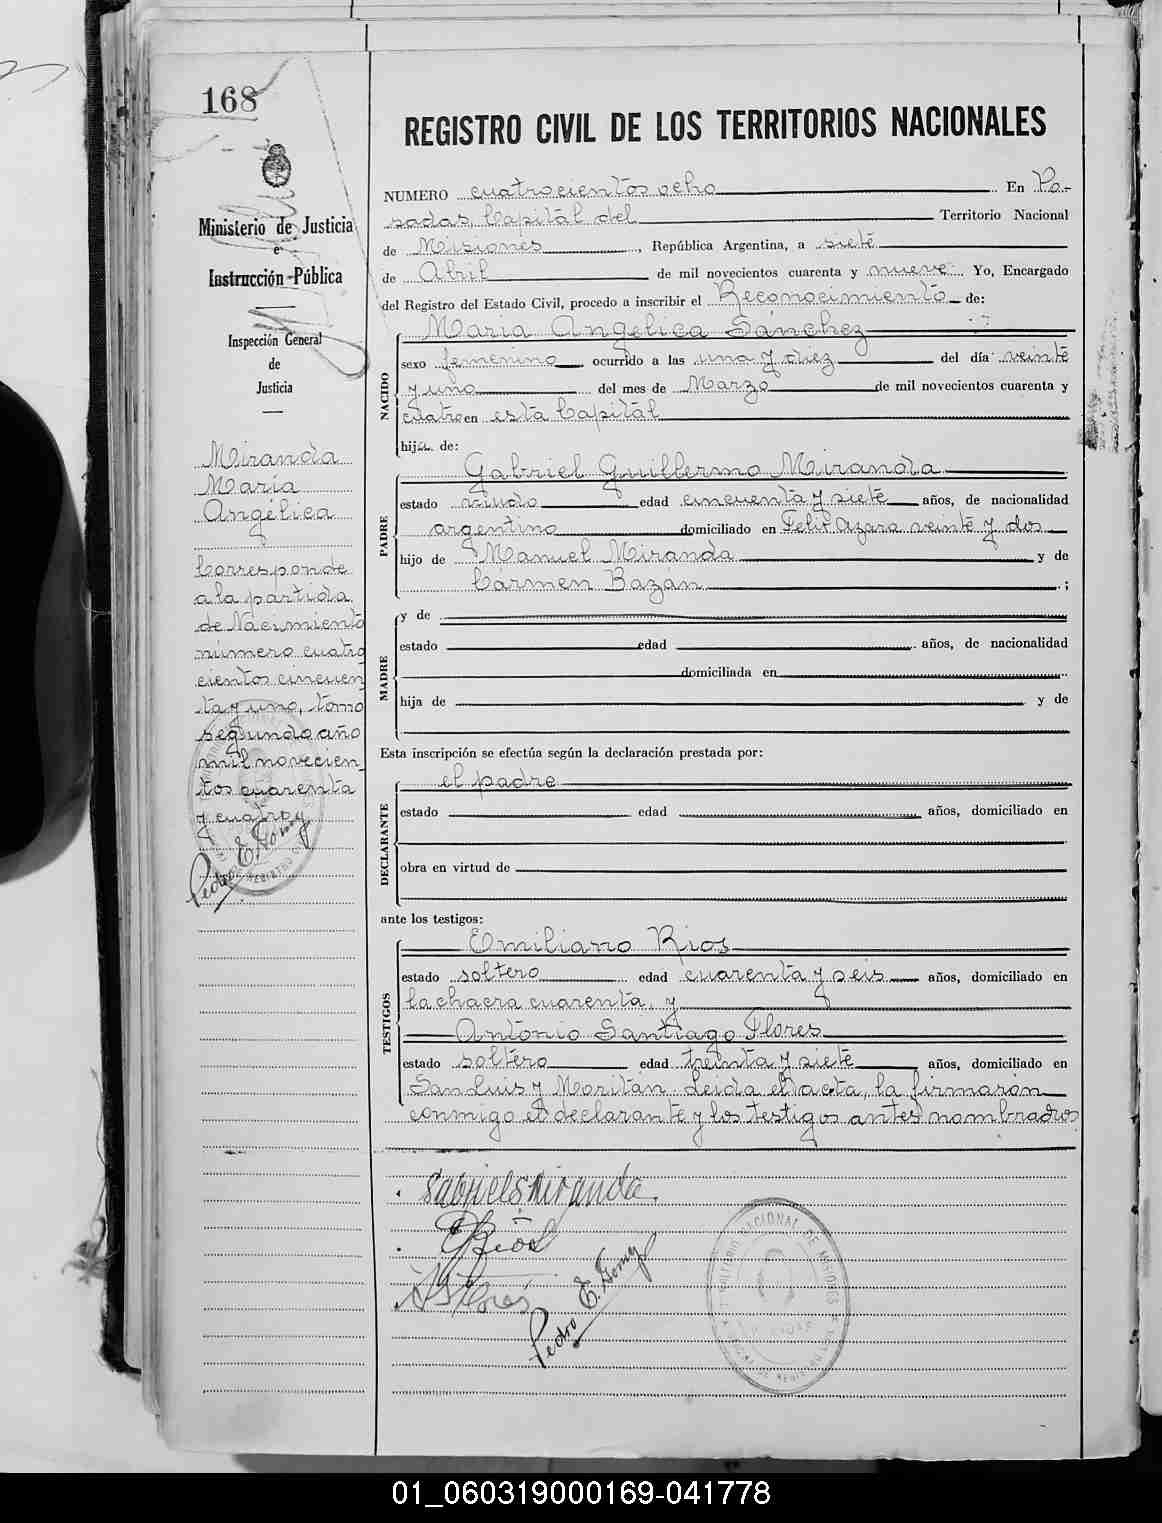 168
Ministerio de Justicia
e
Instrucción Pública
Inspección General
de
Justicia
Miranda
María
Angélica
Corresponde
a la partida
de Nacimiento
número cuatro
cientos cincuen
ta y uno, tomo
segundo año
mil novecien
tos cuarenta
y cuatro
Pedro E. Gomez
REGISTRO CIVIL DE LOS TERRITORIOS NACIONALES
NUMERO cuatrocientos ocho En Po-
sadas, Capital del Territorio Nacional
de Misiones, República Argentina, a siete
de Abril de mil novecientos cuarenta y nueve. Yo, Encargado
del Registro del Estado Civil, procedo a inscribir el Reconocimiento de:
NACIDO
María Angélica Sánchez
sexo femenino, ocurrido a las una y diez del día veinte
y uno del mes de Marzo de mil novecientos cuarenta y
cuatro en esta Capital
hija de:
PADRE
Gabriel Guillermo Miranda
estado viudo edad cincuenta y siete años, de nacionalidad
argentino domiciliado en Felix Azara veinte y dos
hijo de Manuel Miranda y de
Carmen Bazán ;
MADRE
y de
estado edad años, de nacionalidad
domiciliada en
hija de y de
Esta inscripción se efectúa según la declaración prestada por:
DECLARANTE
el padre
estado edad años, domiciliado en
obra en virtud de
ante los testigos:
TESTIGOS
Emiliano Rios
estado soltero edad cuarenta y seis años, domiciliado en
la chacra cuarenta, y
Antonio Santiago Flores
estado soltero edad treinta y siete años, domiciliado en
San Luis y Moritán. Leida el acta, la firmaron
conmigo el declarante y los testigos antes nombrados
Gabriel G. Miranda.
E Rios
A S Flores
Pedro E. Gomez
01_060319000169-041778